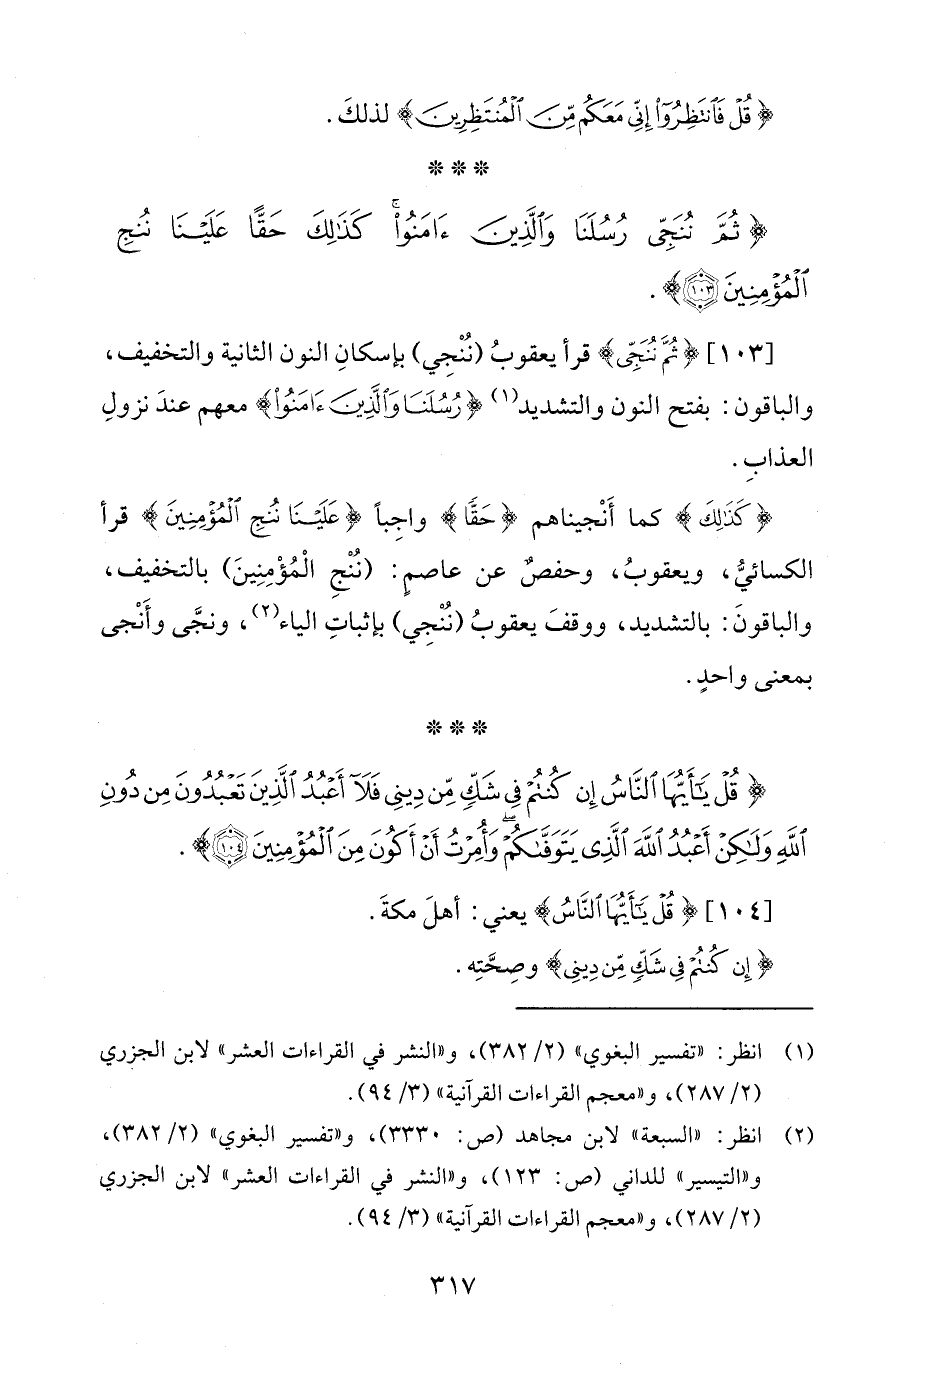 ﴿ قُلْ فَٱنتَظِرُوٓا۟ إِنِّى مَعَكُم مِّنَ ٱلْمُنتَظِرِينَ ﴾ لذلكَ .
* * *
﴿ ثُمَّ نُنَجِّى رُسُلَنَا وَٱلَّذِينَ ءَامَنُوا۟ ۚ كَذَٰلِكَ حَقًّا عَلَيْنَا نُنجِ
ٱلْمُؤْمِنِينَ ﴿١٠٣﴾ ﴾ .
[١٠٣] ﴿ ثُمَّ نُنَجِّى ﴾ قرأ يعقوبُ (نُنْجِي) بإسكانِ النون الثانية والتخفيف،
والباقون: بفتح النون والتشديد(١) ﴿ رُسُلَنَا وَٱلَّذِينَ ءَامَنُوا۟ ﴾ معهم عندَ نزولِ
العذابِ .
﴿ كَذَٰلِكَ ﴾ كما أَنْجيناهم ﴿ حَقًّا ﴾ واجِباً ﴿ عَلَيْنَا نُنجِ ٱلْمُؤْمِنِينَ ﴾ قرأ
الكسائيُّ، ويعقوبُ، وحفصٌ عن عاصمٍ: (نُنْجِ الْمُؤْمِنِينَ) بالتخفيف،
والباقونَ: بالتشديد، ووقفَ يعقوبُ (نُنْجِي) بإثباتِ الياء(٢)، ونجَّى وأَنْجى
بمعنى واحدٍ.
* * *
﴿ قُلْ يَٰٓأَيُّهَا ٱلنَّاسُ إِن كُنتُمْ فِى شَكٍّ مِّن دِينِى فَلَآ أَعْبُدُ ٱلَّذِينَ تَعْبُدُونَ مِن دُونِ
ٱللَّهِ وَلَٰكِنْ أَعْبُدُ ٱللَّهَ ٱلَّذِى يَتَوَفَّىٰكُمْ ۖ وَأُمِرْتُ أَنْ أَكُونَ مِنَ ٱلْمُؤْمِنِينَ ﴿١٠٤﴾ ﴾ .
[١٠٤] ﴿ قُلْ يَٰٓأَيُّهَا ٱلنَّاسُ ﴾ يعني: أهلَ مكةَ .
﴿ إِن كُنتُمْ فِى شَكٍّ مِّن دِينِى ﴾ وصِحَّتِه .
(١) انظر: «تفسير البغوي» (٢/ ٣٨٢)، و«النشر في القراءات العشر» لابن الجزري
(٢/ ٢٨٧)، و«معجم القراءات القرآنية» (٣/ ٩٤).
(٢) انظر: «السبعة» لابن مجاهد (ص: ٣٣٣٠)، و«تفسير البغوي» (٢/ ٣٨٢)،
و«التيسير» للداني (ص: ١٢٣)، و«النشر في القراءات العشر» لابن الجزري
(٢/ ٢٨٧)، و«معجم القراءات القرآنية» (٣/ ٩٤).
٣١٧